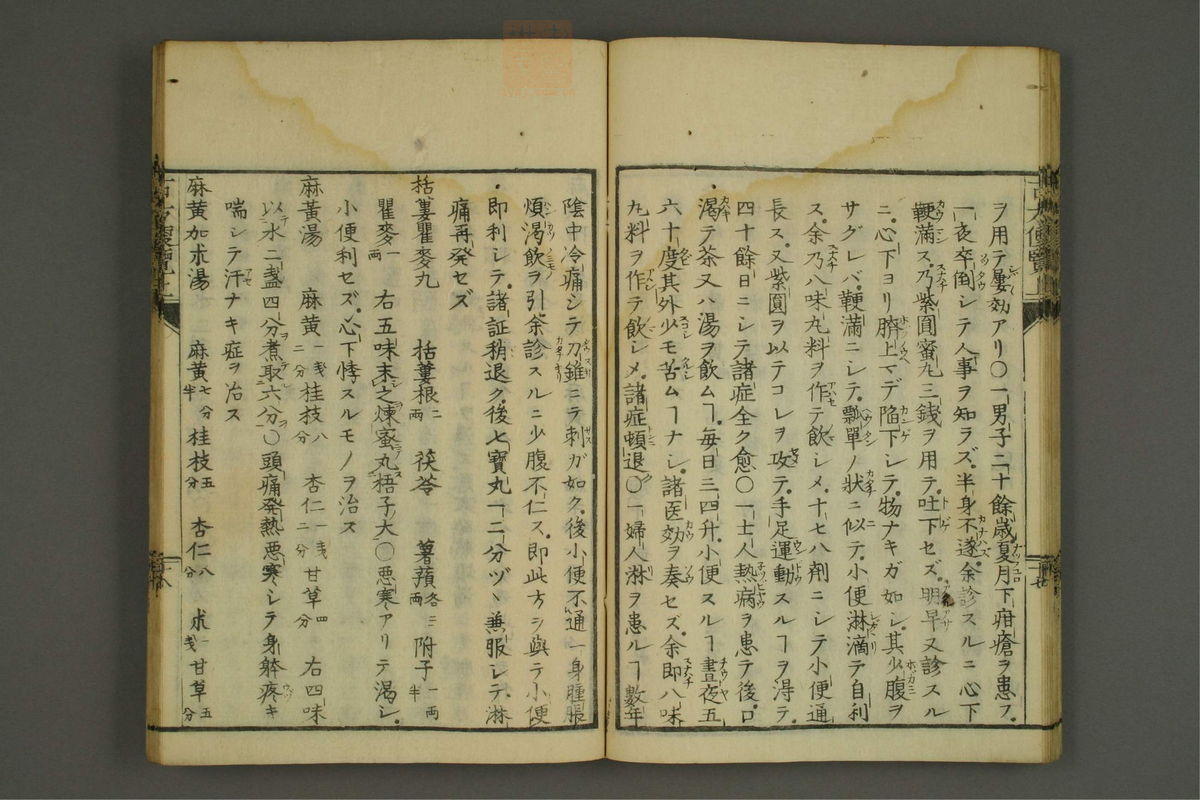 ヲ用テ屡効アリ〇一男子二十餘歳夏月下疳瘡ヲ患フ
一夜卒倒シテ人事ヲ知ラズ半身不遂余診スルニ心下
鞕滿ス乃紫圓蜜丸三銭ヲ用テ吐下セズ明早又診スル
ニ心下ヨリ臍上マデ陷下シテ物ナキガ如シ其少腹ヲ
サグレバ鞕滿ニシテ瓢單ノ狀ニ似テ小便淋滴テ自利
ス余乃八味丸料ヲ作テ飲シメ十七八劑ニシテ小便通
長ス又紫圓ヲ以テコレヲ攻テ手足運動スルヿヲ得テ
四十餘日ニシテ諸症全ク愈〇一士人熱病ヲ患テ後口
渴テ茶又ハ湯ヲ飲ムヿ毎日三四升小便スルヿ晝夜五
六十度其外少モ苦ムヿナシ諸医効ヲ奏セズ余即八味
丸料ヲ作テ飲シメ諸症頓退〇一婦人淋ヲ患ルヿ數年
陰中冷痛シテ刀錐ニテ刺ガ如ク後小便不通一身腫脹
煩渴飲ヲ引余診スルニ少腹不仁ス即此方ヲ與テ小便
即利シテ諸証稍退ク後七寶丸一二分ヅヽ兼服シテ淋
痛再発セズ
括蔞瞿麥丸　括蔞根二両　茯苓　薯蕷各三両　附子一両半
瞿麥一両　右五味末之煉蜜丸梧子大〇悪寒アリテ渴シ
小便利セズ心下悸スルモノヲ治ス
麻黄湯　麻黄一戔二分　桂枝八分　杏仁一戔二分　甘草四分　右四味
以水二盞四分煮取六分〇頭痛発熱悪寒シテ身躰疼キ
喘シテ汗ナキ症ヲ治ス
麻黄加朮湯　麻黄七分半　桂枝五分　杏仁八分　朮一戔　甘草五分